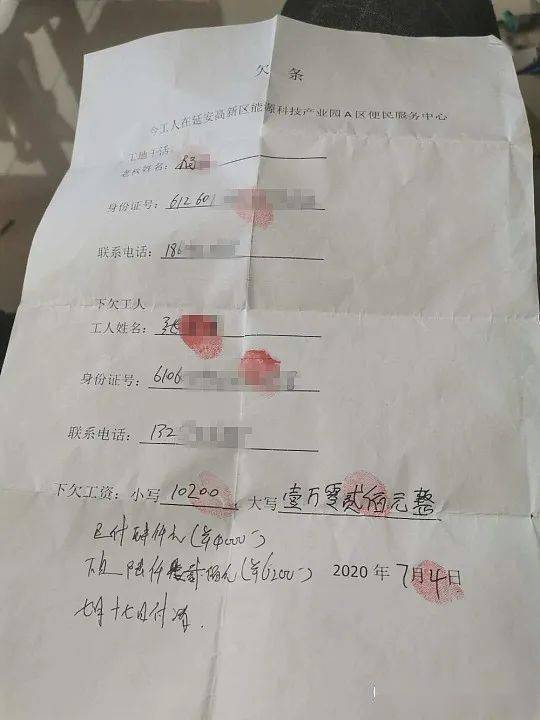 欠 条
今工人在延安高新区能源科技产业园A区便民服务中心
工地干活:
老板姓名:
身份证号: 612601
联系电话: 186
下欠工人
工人姓名: 张
身份证号: 6106
联系电话: 132
下欠工资: 小写 10200 . 大写 壹万零贰佰元整
已付肆仟元(¥4000-)
下欠 陆仟贰佰元(¥6200-) 2020 年 7月4日
七月十七日付清.